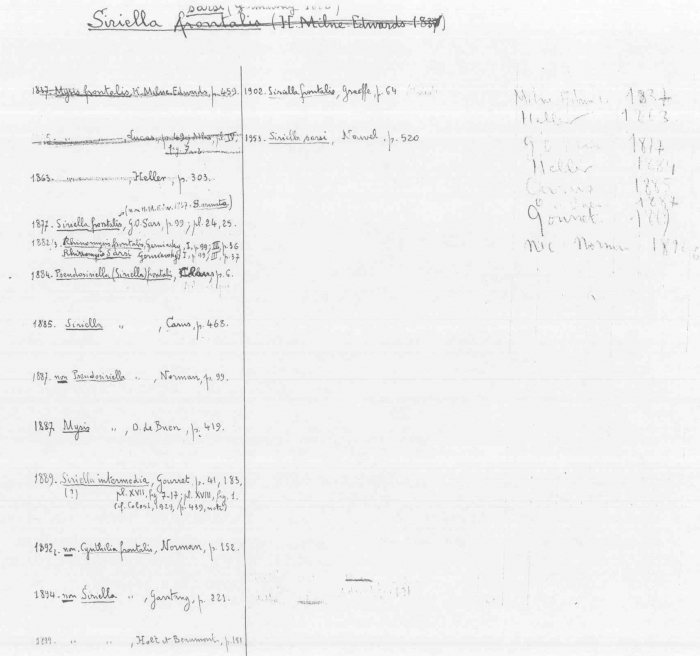 sarsi (Czerniavsky
Siriella frontalis (H. Milne Edwards 1837)
1837. Mysis frontalis, H. Milne Edwards, p. 459.
" " , Lucas, pl. IV,
fig. 7.
1863. " " , Heller, p. 303.
1877. Siriella frontalis, G.O. Sars, p. 99; pl. 24, 25.
1882/3. Rhinomysis frontalis, Czerniavsky, I, p. 99; III, p. 36
Rhinomysis Sarsi Czerniavsky, I, p. 99; III, p. 37
1884. Pseudosiriella (Siriella) frontalis, Claus, p. 6.
1885. Siriella " , Carus, p. 468.
1887. non Pseudosiriella " , Norman, p. 99.
1887. Mysis " , O. de Buen, p. 419.
1889. Siriella intermedia, Gourret, p. 41, 183,
(?) pl. XVII, fig. 7-17; pl. XVIII, fig. 1.
(cf. Colosi, 1929, p. 439, note)
1892. non Cynthilia frontalis, Norman, p. 152.
1894. non Siriella " , Garstang, p. 221.
1899. " " , Holt et Beaumont, p. 151
1902. Siriella frontalis, Graeffe, p. 64
1953. Siriella sarsi, Nouvel, p. 520
Milne Edw 1837
Heller 1863
G O Sars 1877
Heller 1884
Carus 1885
1887
Gourret 1889
nec Norman 1892